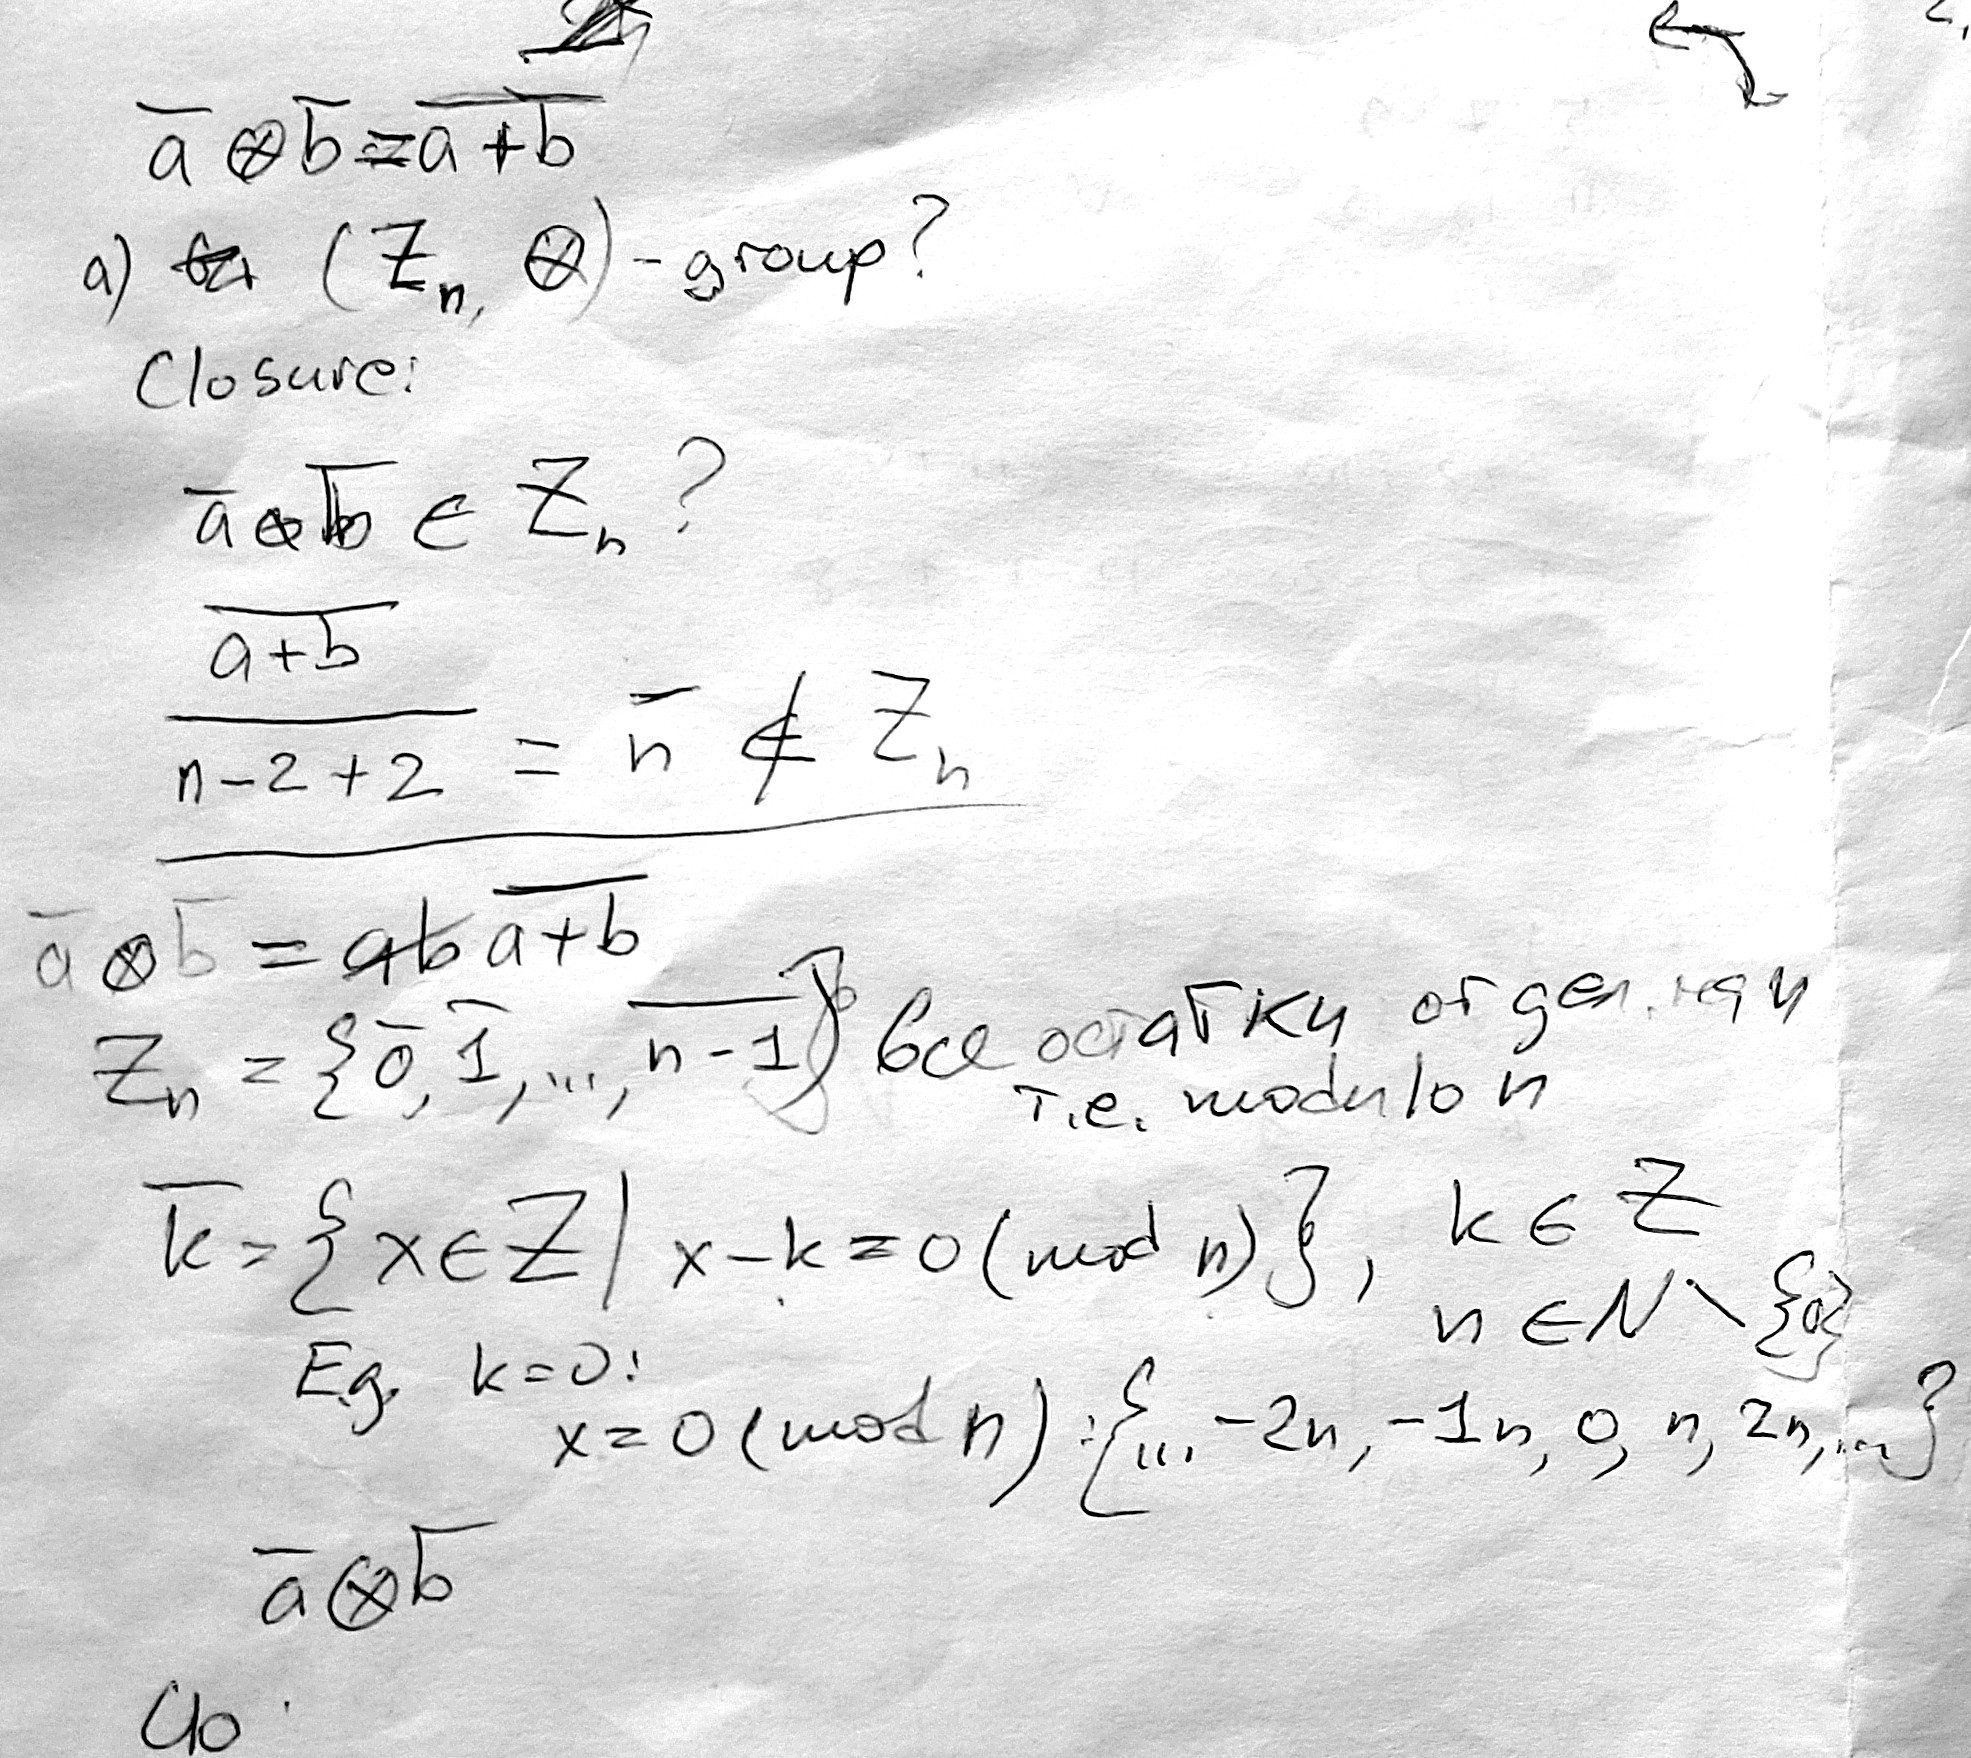 a̅ ⊗ b̅ = \overline{a+b}
a) (Z_n, ⊗) - group?
Closure:
a̅ ⊗ b̅ ∈ Z_n ?
\overline{a+b}
\overline{n-2+2} = n̅ ∉ Z_n
a̅ ⊗ b̅ = \overline{a+b}
Z_n = {0̅, 1̅, ..., \overline{n-1}} все остатки от дел. на n
т.е. modulo n
k̅ = {x ∈ Z | x-k=0 (mod n)}, k ∈ Z
n ∈ N \ {0}
E.g. k=0:
x=0 (mod n) : {... -2n, -1n, 0, n, 2n, ...}
a̅ ⊗ b̅
Clo